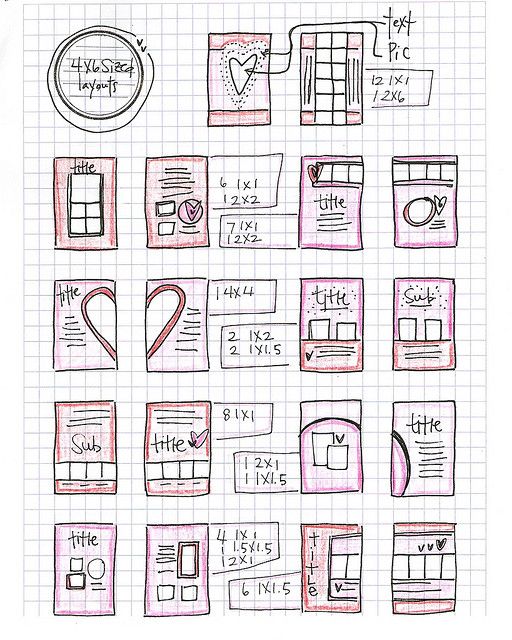 4x6 Sized
layouts
text
Pic
12 1x1
1 2x6
title
6 1x1
1 2x2
7 1x1
1 2x2
title
title
1 4x4
2 1x2
2 1x1.5
title
Sub
Sub
title
8 1x1
1 2x1
1 1x1.5
title
title
4 1x1
1 1.5x1.5
1 2x1
6 1x1.5
title